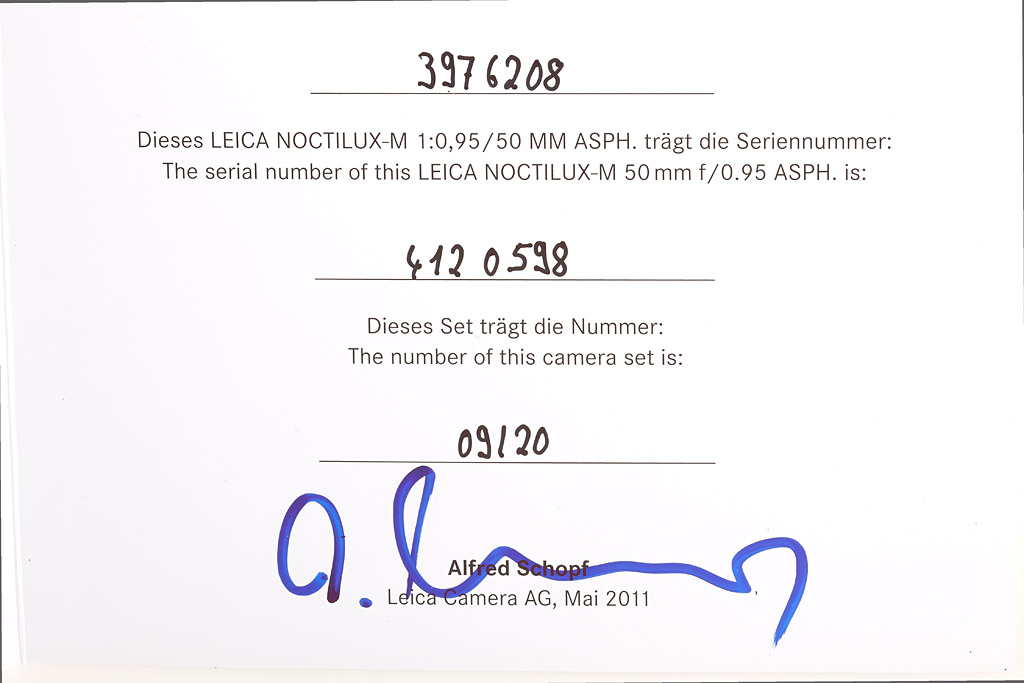 3976208
Dieses LEICA NOCTILUX-M 1:0,95/50 MM ASPH. trägt die Seriennummer:
The serial number of this LEICA NOCTILUX-M 50 mm f/0.95 ASPH. is:
412 0598
Dieses Set trägt die Nummer:
The number of this camera set is:
09/20
Alfred Schopf
Leica Camera AG, Mai 2011